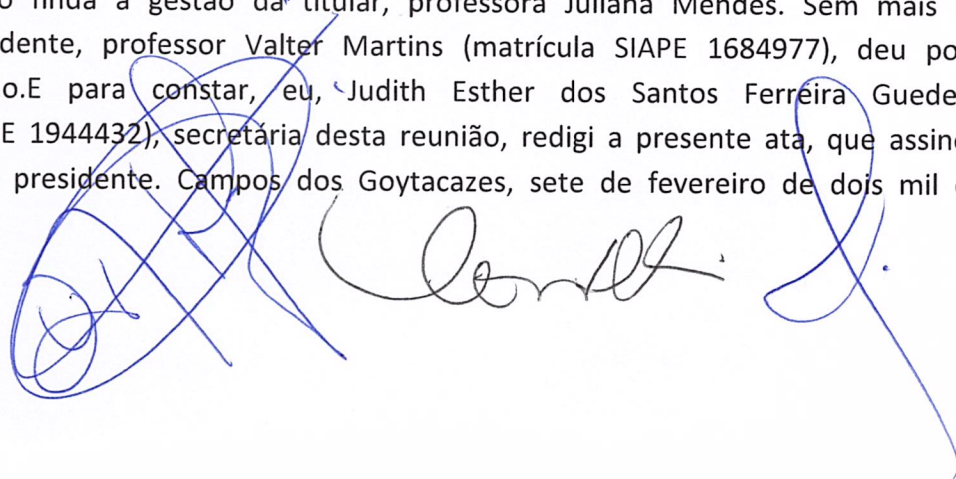 finda a gestão da titular, professora Juliana Mendes. Sem mais
dente, professor Valter Martins (matrícula SIAPE 1684977), deu po
o.E para constar, eu, Judith Esther dos Santos Ferreira Guede
E 1944432), secretária desta reunião, redigi a presente ata, que assin
presidente. Campos dos Goytacazes, sete de fevereiro de dois mil